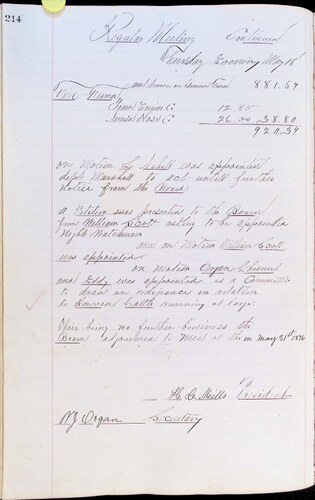 214
Regular Meeting Continued
Thursday Evening May 18
and drawn on General Fund 881.59
Fire Fund
Engine C. 12.80
Hose C. 26.00 38.80
920.39
on Motion was appointed
dept Marshall to act untill further
notice from the Board
a Petition was presented to the Board
from William Scott asking to be appointed
Night Watchman
and on Motion William Scott
was appointed
on motion Organ
and Eddy was appointed as a Committee
to draw an ordinance in relation
to Cattle running at large.
their being no further business the
Board adjourned to Meet at the on May 31st 1876
H. L. Mills President
N.J. Organ Secretary